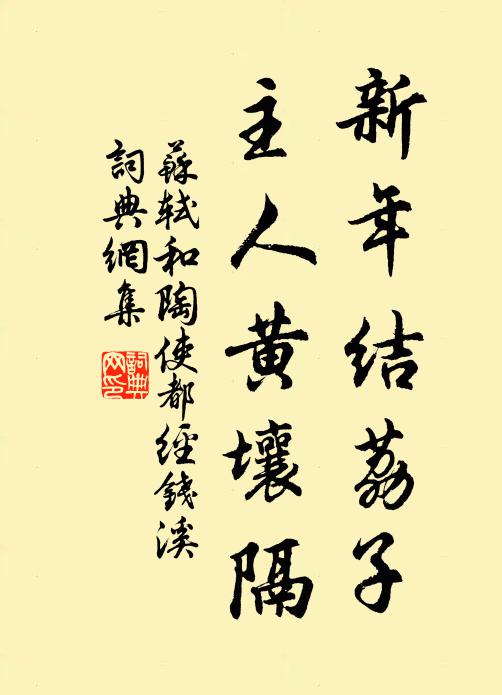 新年结荔子
主人黄壤隔
蘇軾和陶使都經錢溪
詞典網集
詞典网印